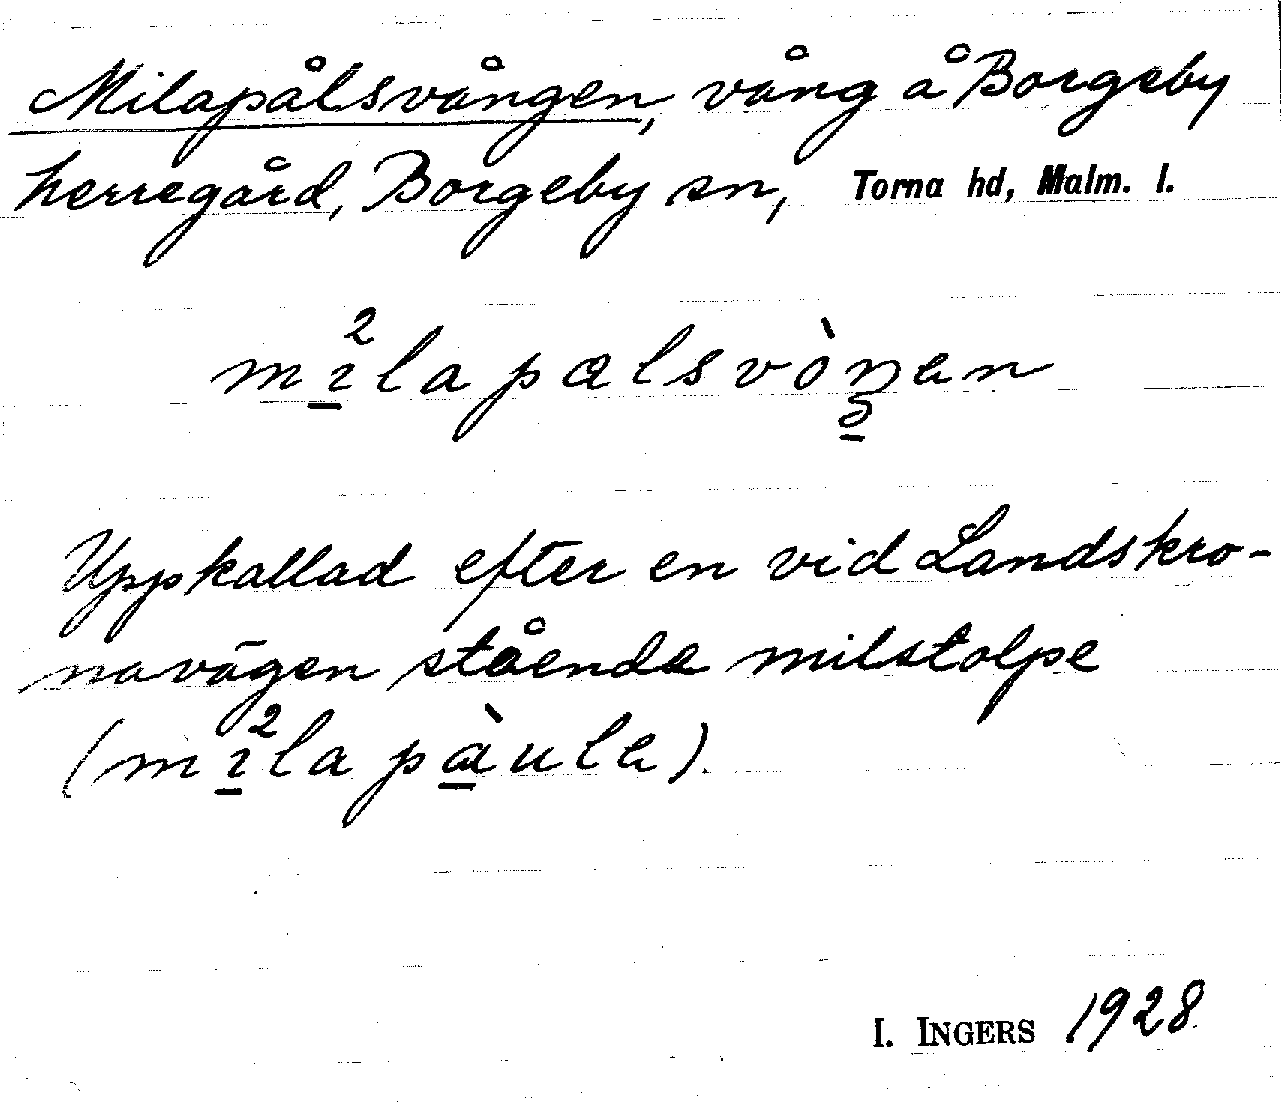 Milapålsvången, vång å Borgeby
herregård, Borgeby sn, Torna hd, Malm. l.
mı̱²lapalsvòŋ̱en
Uppkallad efter en vid Landskro-
navägen stående milstolpe
(mı̱²la pà̱ule).
I. INGERS 1928.